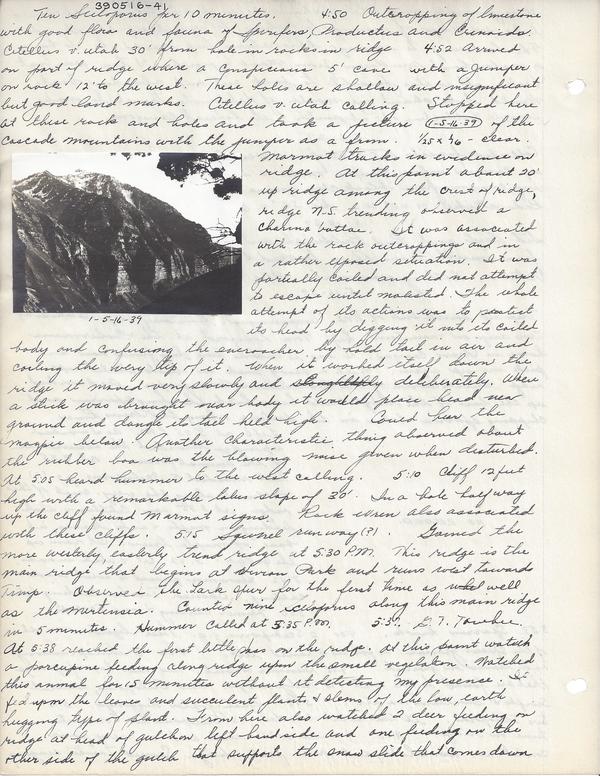 390516-41
Ten Sceloporus per 10 minutes. 4:50 Outcropping of limestone
with good flora and fauna of Spirifers, Productus and Crinoids.
Citellus v. utah 30' from hole in rocks in ridge 4:52 Arrived
on part of ridge where a conspicuous 5' cave with a Juniper
on rock 12' to the west. These holes are shallow and insignificant
but good land marks. Citellus v. utah calling. Stopped here
at these rock and holes and took a picture (1-5-16-39) of the
Cascade mountains with the juniper as a from. 1/25 x f16 - clear.
Marmot tracks in evidence on
ridge. At this point about 20'
up ridge among the crest of ridge,
ridge N-S. trending observed a
Charina bottae. It was associated
with the rock outcroppings and in
a rather exposed situation. It was
partially coiled and did not attempt
to escape until molested. The whole
attempt of its actions was to protect
its head by digging it into its coiled
1-5-16-39
body and confusing the encroacher by hold tail in air and
coiling the very tip of it. When it worked itself down the
ridge it moved very slowly and deliberately. When
a stick was brought near body it would place head near
ground and dangle its tail held high. Could hear the
magpie below. Another characteristic thing observed about
the rubber boa was the blowing noise given when disturbed.
At 5:05 heard hummer to the west calling. 5:10 Cliff 12 feet
high with a remarkable talus slope of 30'. In a hole halfway
up the cliff found Marmot signs. Rock wren also associated
with these cliffs. 5:15 Squirrel runway (?). Gained the
more westerly, easterly trend ridge at 5:30 P.M. This ridge is the
main ridge that begins at Vivian Park and runs west towards
Timp. Observed the Lark spur for the first time as well
as the Mertensia. Counted nine Sceloporus along this main ridge
in 5 minutes. Hummer called at 5:35 P.M. 5:37 G.T. Towhee.
At 5:38 reached the first little pass on the ridge. At this point watch
a porcupine feeding along ridge upon the small vegetation. Watched
this animal for 15 minutes without it detecting my presence. It
fed upon the leaves and succulent plants & stems of the low, earth
hugging type of plant. From here also watched 2 deer feeding on
ridge at head of gulch on left hand side and one feeding on the
other side of the gulch that supports the snow slide that comes down